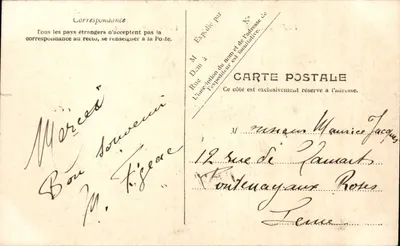 Correspondance
Tous les pays étrangers n'acceptent pas la
correspondance au recto, se renseigner à la Poste.
Expédié par
M
Dem. à
Rue
N°
L'inscription du nom et de l'adresse de
l'expéditeur est facultative.
CARTE POSTALE
Ce côté est exclusivement réservé à l'adresse.
Merci
Bon souvenir
M. Figeac
M onsieur Maurice Jacques
12 rue de
Fontenay aux Roses
Seine